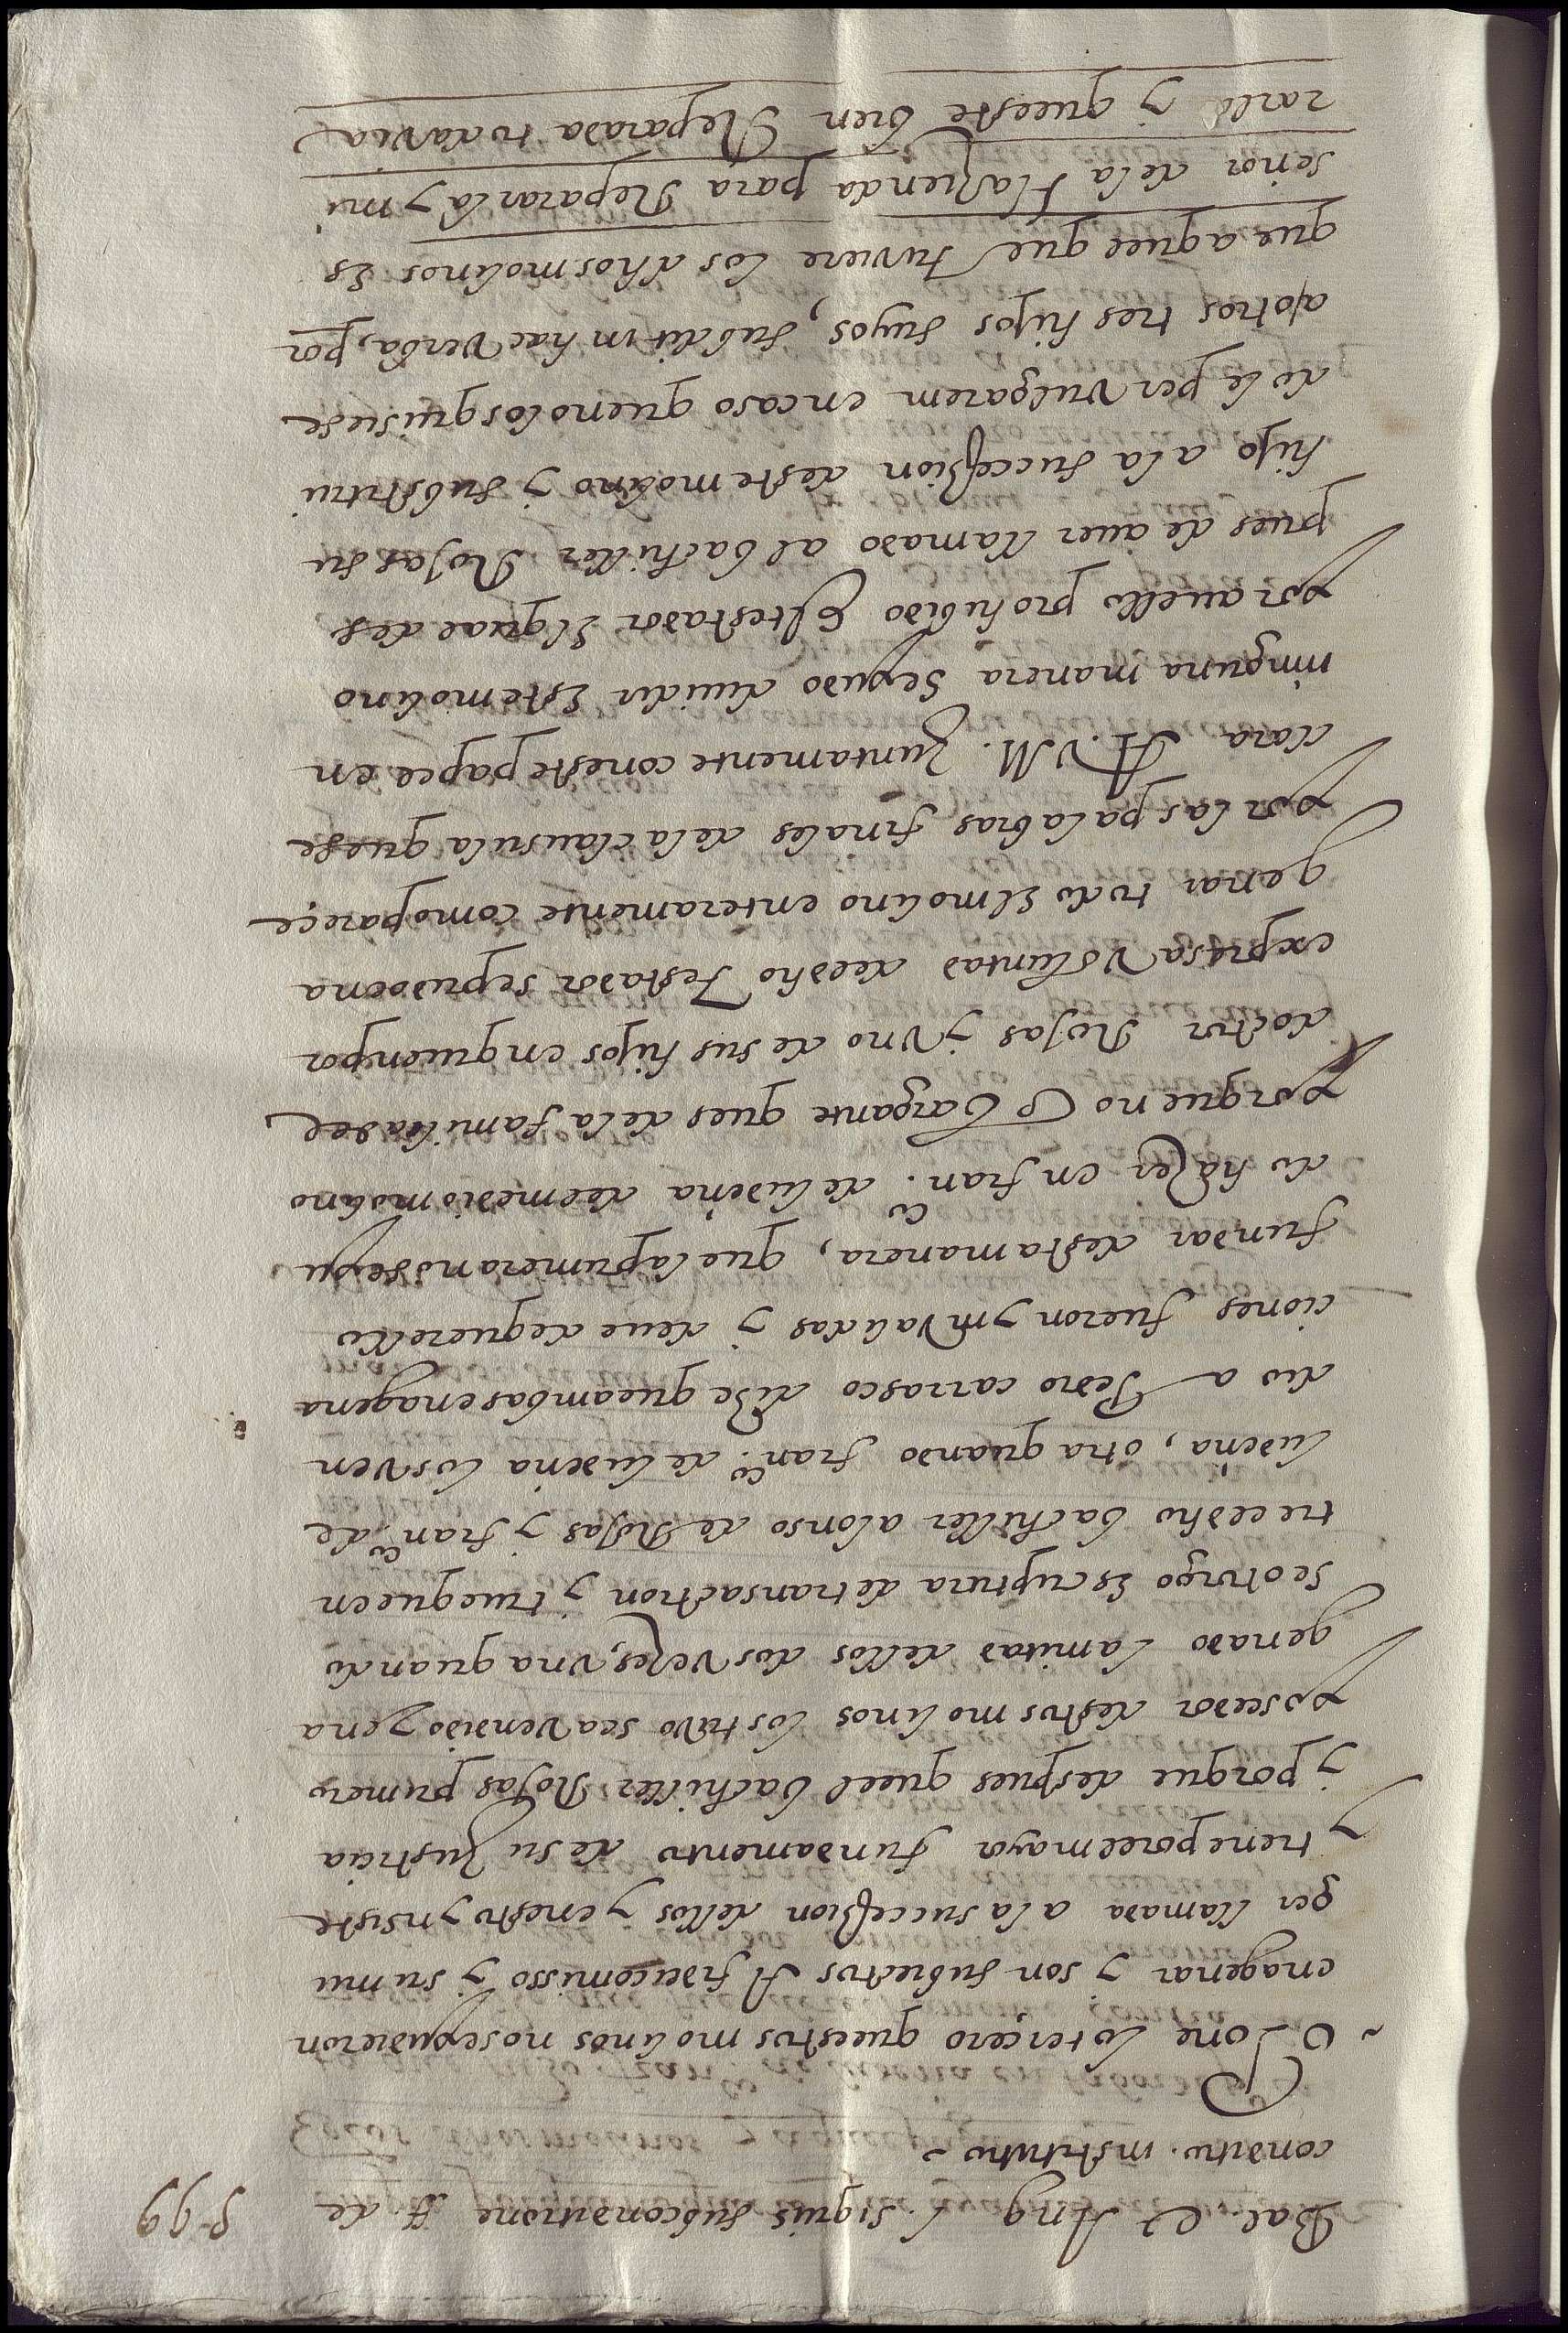 Bal. et Ang. l. si quis sub conditione ff. de
599
conditio. institutio ~
Opone lo tercero questos molinos no se pudieron
enagenar y son subiectos A fideicomisso y su mu
ger llamada a la succession dellos y en esto ynsiste
y tiene por el mayor fundamento de su Justicia
y porque despues que el bachiller Rojas primero
poseedor destos molinos los tuvo se a vendido y ena
genado la mitad dellos dos vezes, vna quando
se otorgo Escriptura de transaction y trueque en
tre el dho bachiller alonso de Rojas y fran.co de
ludeña, otra quando fran.co de ludeña los ven
dio a Pedro carrasco dize que ambas enagena
ciones fueron ynValidas y deue de querello
fundar desta manera, que la primera no se pu
do hazer en fran.co de ludeña del medio molino
porque no es bargante ques de la familia del
doctor Rojas y Vno de sus hijos en quien por
expresa Voluntad del dho Testador se pudo ena
genar todo El molino enteramente como parece
por las palabras finales de la clausula que se
dara A. V.M. Juntamente con este papel en
ninguna manera se pudo diuidir Este molino
por auello prohibido El testador El qual des
pues de auer llamado al bachiller Rojas su
hijo a la succession deste molino y substitui
dole per vulgarem en caso que no los quisiese
a otros tres hijos suyos, subdit in hac verba, por
que a quel que tuviere los dhos molinos Es
señor de la Hazienda para Repararla y mi
rarla y que este bien Reparada todavia